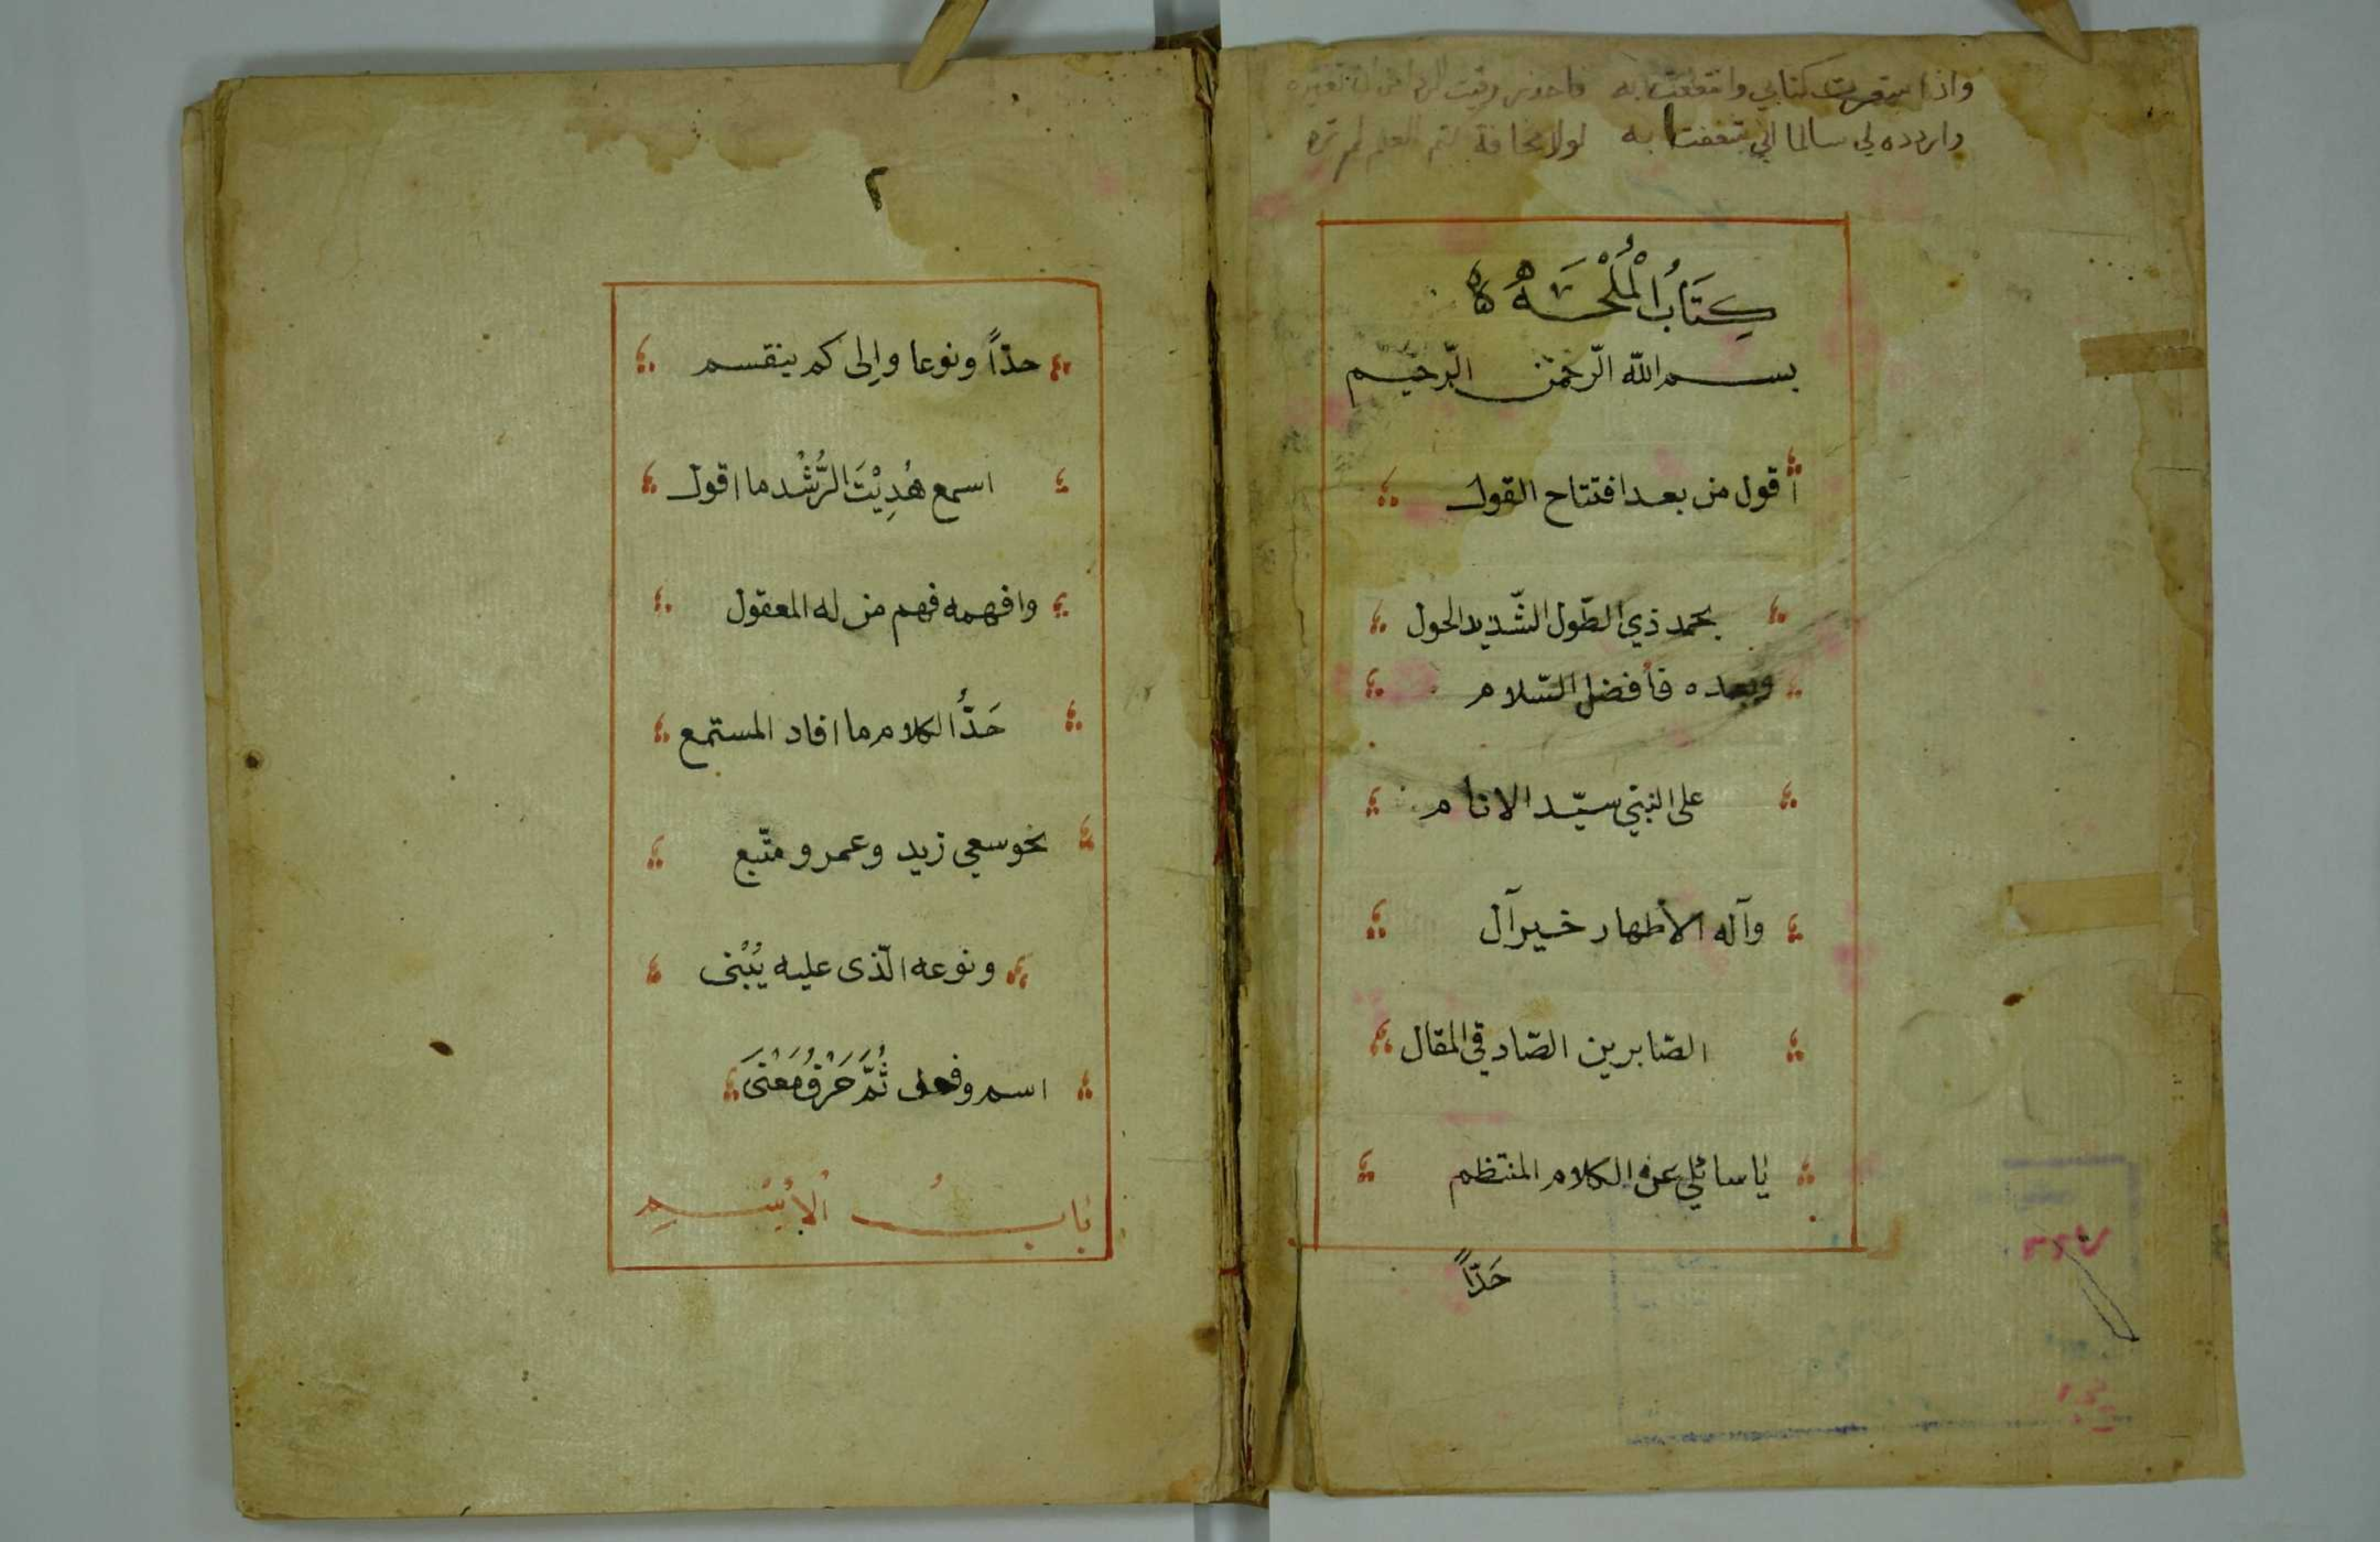 واذا استعرت كتابي وانتفعت به فاحذر وقيت الردا من ان تغيره
واردده لي سالما اني شغفت به لولا مخافة كتم العلم لم تره
كِتَابُ الْمُلْحَةِ
بسم الله الرّحمن الرّحيم
أقول من بعد افتتاح القول
بحمد ذي الطّول الشّديد الحول
وبعده فأفضل السّلام
على النبيّ سيّد الانام
وآله الأطهار خير آل
الصّابرين الصّادقي المقال
يا سائلي عن الكلام المنتظم
حَدّاً
٢
حدّاً ونوعا وإلى كم ينقسم
اسمع هُدِيْتَ الرُّشْد ما اقول
وافهمه فهم من له المعقول
حَدُّ الكلام ما افاد المستمع
نحو سعي زيد وعمرو متّبع
ونوعه الّذى عليه يُبْنى
اسم وفعل ثُمَّ حَرْفُ مَعْنَى
بابُ الْاِسْمِ